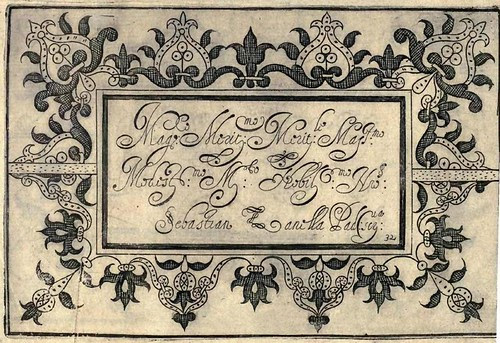 Mag.co Merit.mo Merit.le Mag.mo
Modest.mo M.co Nobil.mo No.s
Sebastian Zanella Pad. scr.
32